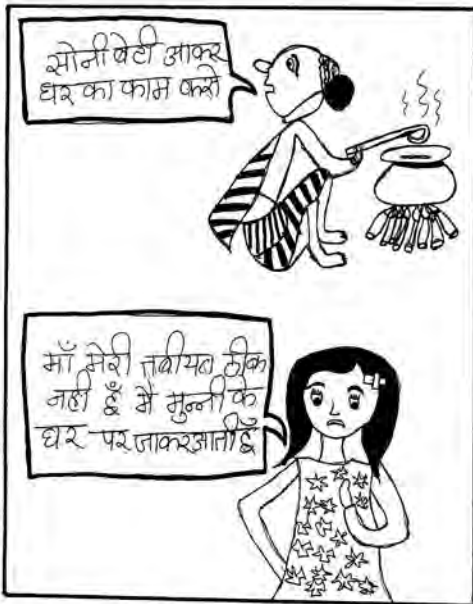 सोनी बेटी आकर
घर का काम करो
माँ मेरी तबीयत ठीक
नहीं हैं मैं मुन्नी के
घर पर जाकर आती हूँ